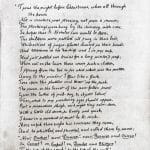 'Twas the night before Christmas, when all through
the house
Not a creature was stirring, not even a mouse;
The stockings were hung by the chimney with care
In hopes that St. Nicholas soon would be there;
The children were nestled all snug in their beds,
While visions of sugar-plums danced in their heads;
And Mamma in her kerchief, and I in my cap,
Had just settled our brains for a long winter's nap;
When out on the lawn there arose such a clatter,
I sprang from the bed to see what was the matter.
Away to the window I flew like a flash,
Tore open the shutters and threw up the sash.
The moon on the breast of the new-fallen snow
Gave the lustre of mid-day to objects below,
When, what to my wondering eyes should appear,
But a miniature sleigh, and eight tiny reindeer,
With a little old driver, so lively and quick,
I knew in a moment it must be St. Nick.
More rapid than eagles his coursers they came,
And he whistled, and shouted, and called them by name;